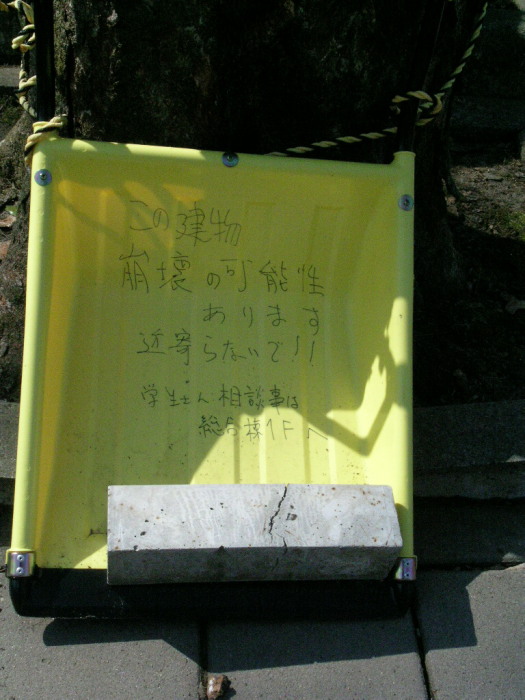 この建物
崩壊の可能性
あります
近寄らないで!!
学生さん相談事は
総合棟1Fへ